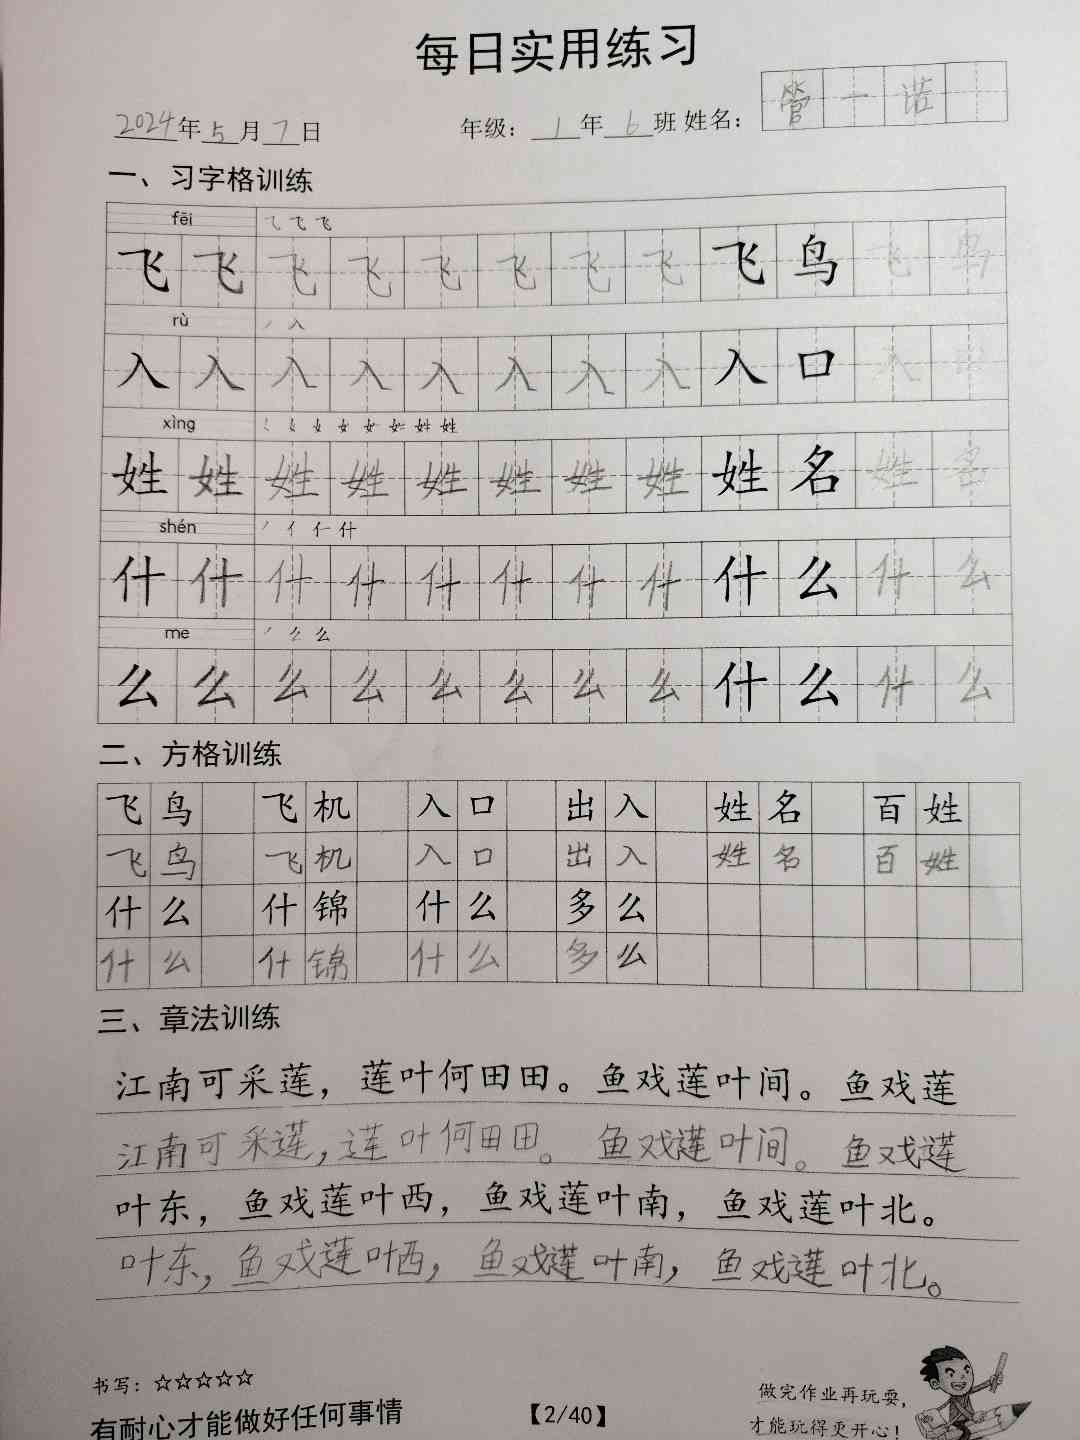 每日实用练习
2024年5月7日 年级：1年6班 姓名：管一诺
一、习字格训练
fēi
飞飞飞飞飞飞飞飞飞鸟飞鸟
rù
入入入入入入入入入口入口
xìng
姓姓姓姓姓姓姓姓姓名姓名
shén
什什什什什什什什什么什么
me
么么么么么么么么什么什么
二、方格训练
飞鸟 飞机 入口 出入 姓名 百姓
飞鸟 飞机 入口 出入 姓名 百姓
什么 什锦 什么 多么
什么 什锦 什么 多么
三、章法训练
江南可采莲，莲叶何田田。鱼戏莲叶间。鱼戏莲
江南可采莲，莲叶何田田。鱼戏莲叶间。鱼戏莲
叶东，鱼戏莲叶西，鱼戏莲叶南，鱼戏莲叶北。
叶东，鱼戏莲叶西，鱼戏莲叶南，鱼戏莲叶北。
书写：☆☆☆☆☆
有耐心才能做好任何事情
【2/40】
做完作业再玩耍，
才能玩得更开心！